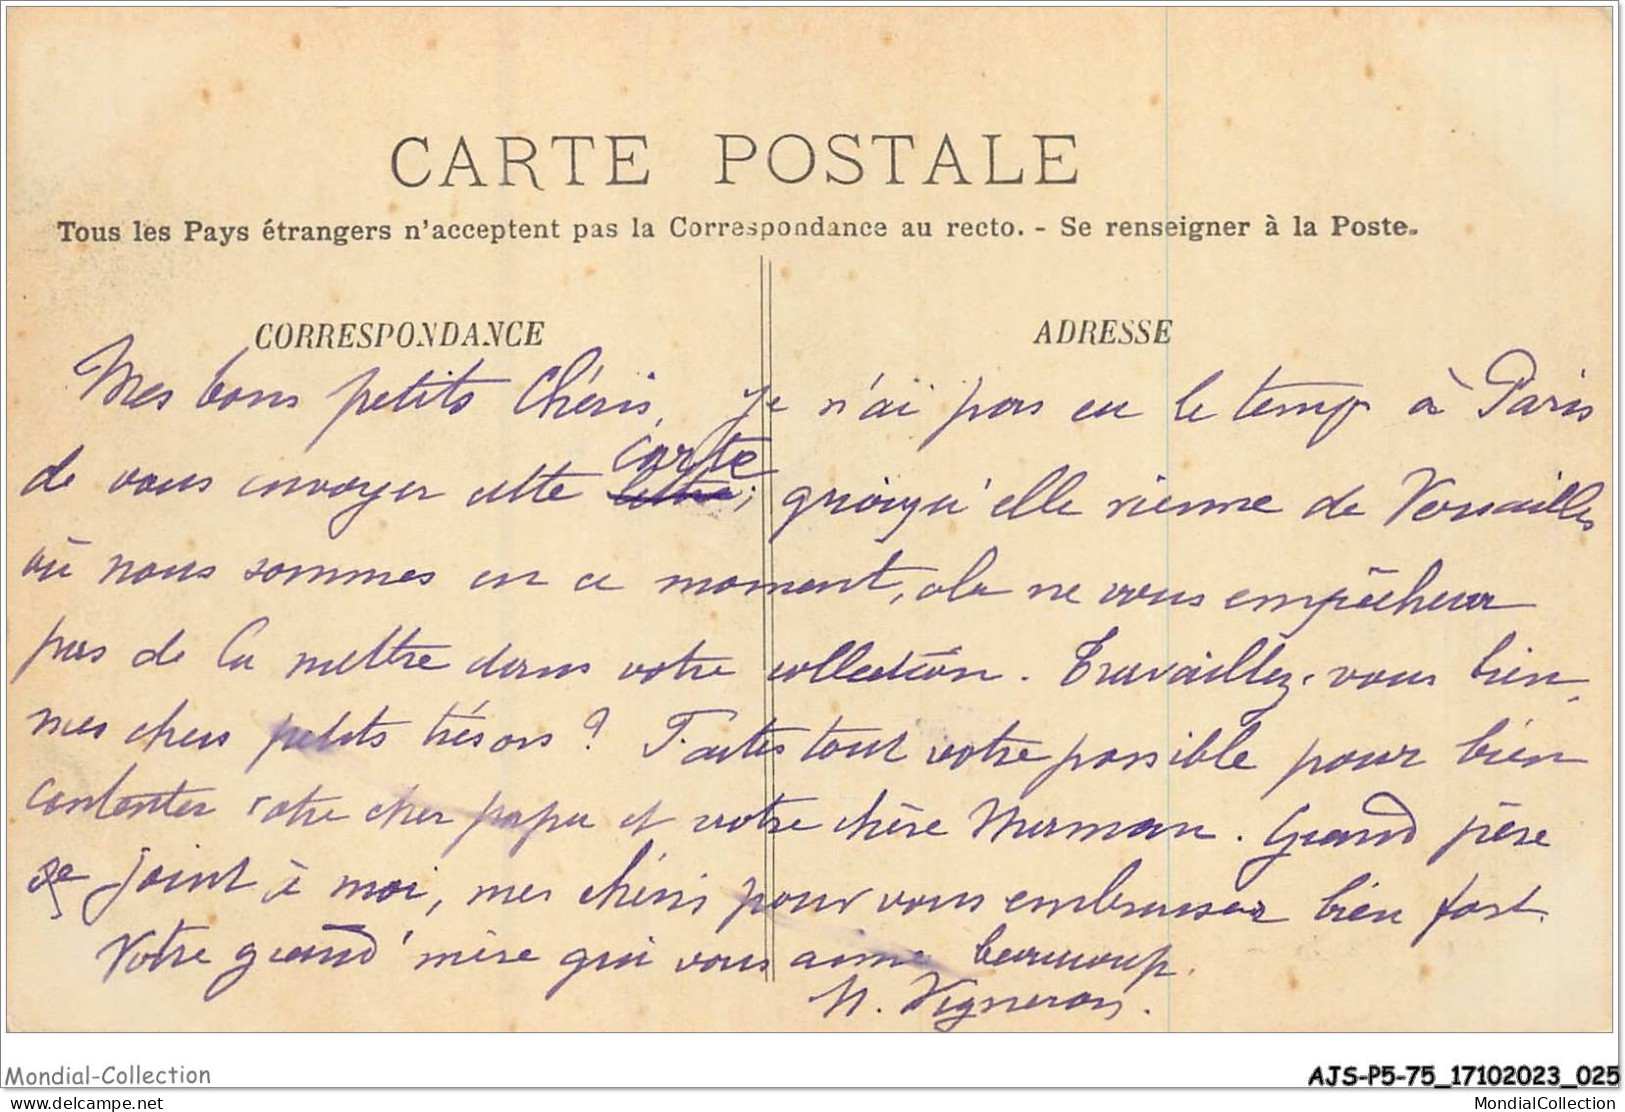 CARTE POSTALE
Tous les Pays étrangers n'acceptent pas la Correspondance au recto. - Se renseigner à la Poste.
CORRESPONDANCE
ADRESSE
Mes bons petits Chéris, je n'ai pas eu le temps à Paris
carte
de vous envoyer cette lettre; quoiqu'elle vienne de Versailles
où nous sommes en ce moment, cela ne vous empêchera
pas de la mettre dans votre collection. Travaillez-vous bien,
mes chers petits trésors ? Faites tout votre possible pour bien
contenter votre cher papa et votre chère Maman. Grand père
se joint à moi, mes chéris pour vous embrasser bien fort.
Votre grand'mère qui vous aime beaucoup.
Vigneron.
Mondial-Collection
AJS-P5-75_17102023_025
delcampe.net
MondialCollection